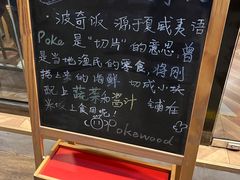 ·波奇饭 源于夏威夷语
Poke 是"切片"的意思,曾
是当地渔民的零食,将刚
捞上来的海鲜 切成小块
配上蔬菜和酱汁 铺在
米饭上食用呢!
okewood